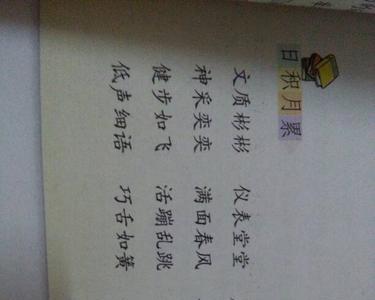 日积月累
文质彬彬 仪表堂堂
神采奕奕 满面春风
健步如飞 活蹦乱跳
低声细语 巧舌如簧